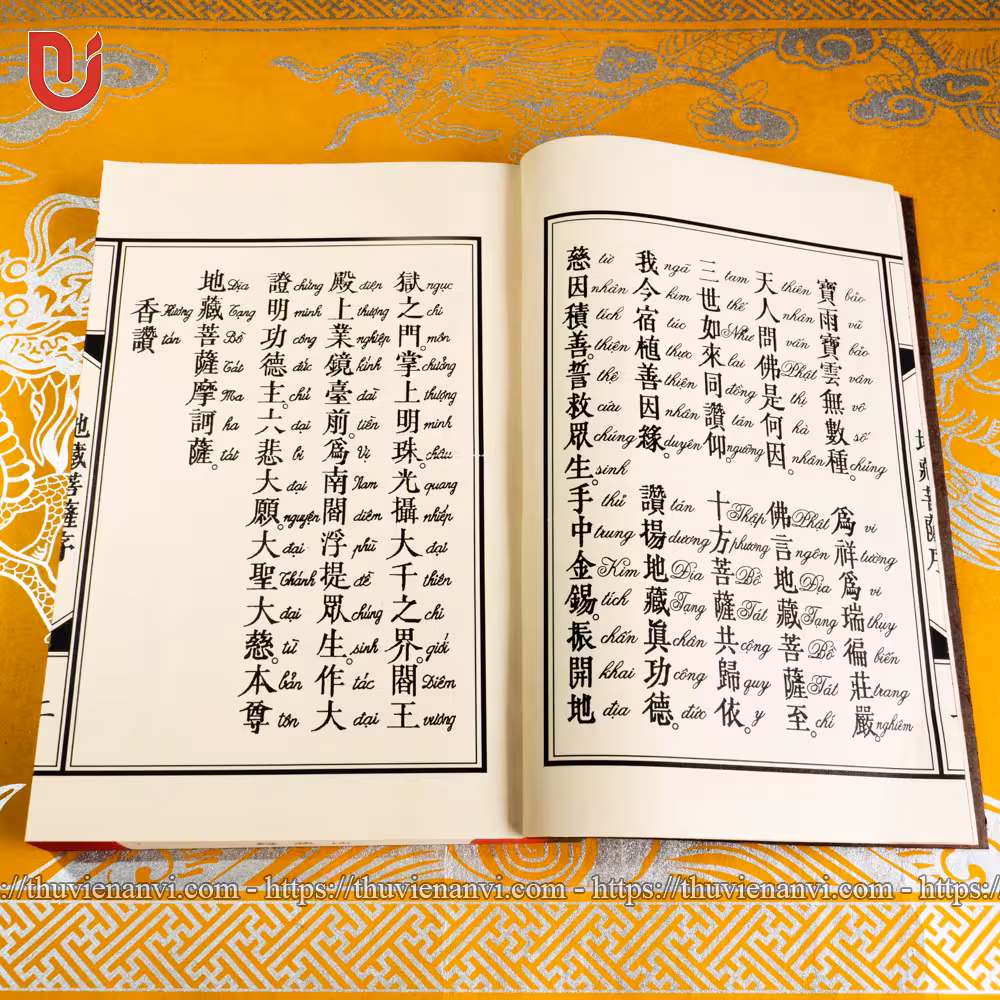 寶雨寶雲無數種。爲祥爲瑞徧莊嚴。
bảo vũ bảo vân vô số chủng vi tường vi thụy biến trang nghiêm
天人問佛是何因。佛言地藏菩薩至。
thiên nhân vấn Phật thị hà nhân Phật ngôn Địa Tạng Bồ Tát chí
三世如來同讚仰。十方菩薩共歸依。
tam thế Như lai đồng tán ngưỡng Thập phương Bồ Tát cộng quy y
我今宿植善因緣。讚揚地藏眞功德。
ngã kim túc thực thiện nhân duyên tán dương Địa Tạng chân công đức
慈因積善。誓救眾生。手中金錫。振開地
từ nhân tích thiện thệ cứu chúng sinh thủ trung Kim tích chấn khai địa
地藏菩薩序
一
獄之門。掌上明珠。光攝大千之界。閻王
ngục chi môn chưởng thượng minh châu quang nhiếp đại thiên chi giới Diêm vương
殿上業鏡臺前。爲南閻浮提眾生。作大
điện thượng nghiệp kính đài tiền Vị Nam diêm phù đề chúng sinh tác đại
證明功德主。大悲大願。大聖大慈。本尊
chứng minh công đức chủ đại bi đại nguyện đại Thánh đại từ bản tôn
地藏菩薩摩訶薩。
Địa Tạng Bồ Tát Ma ha tát
香讚
Hương tán
地藏菩薩序
二
https://thuvienanvi.com - https://thuvienanvi.com - https://thuvienanvi.com